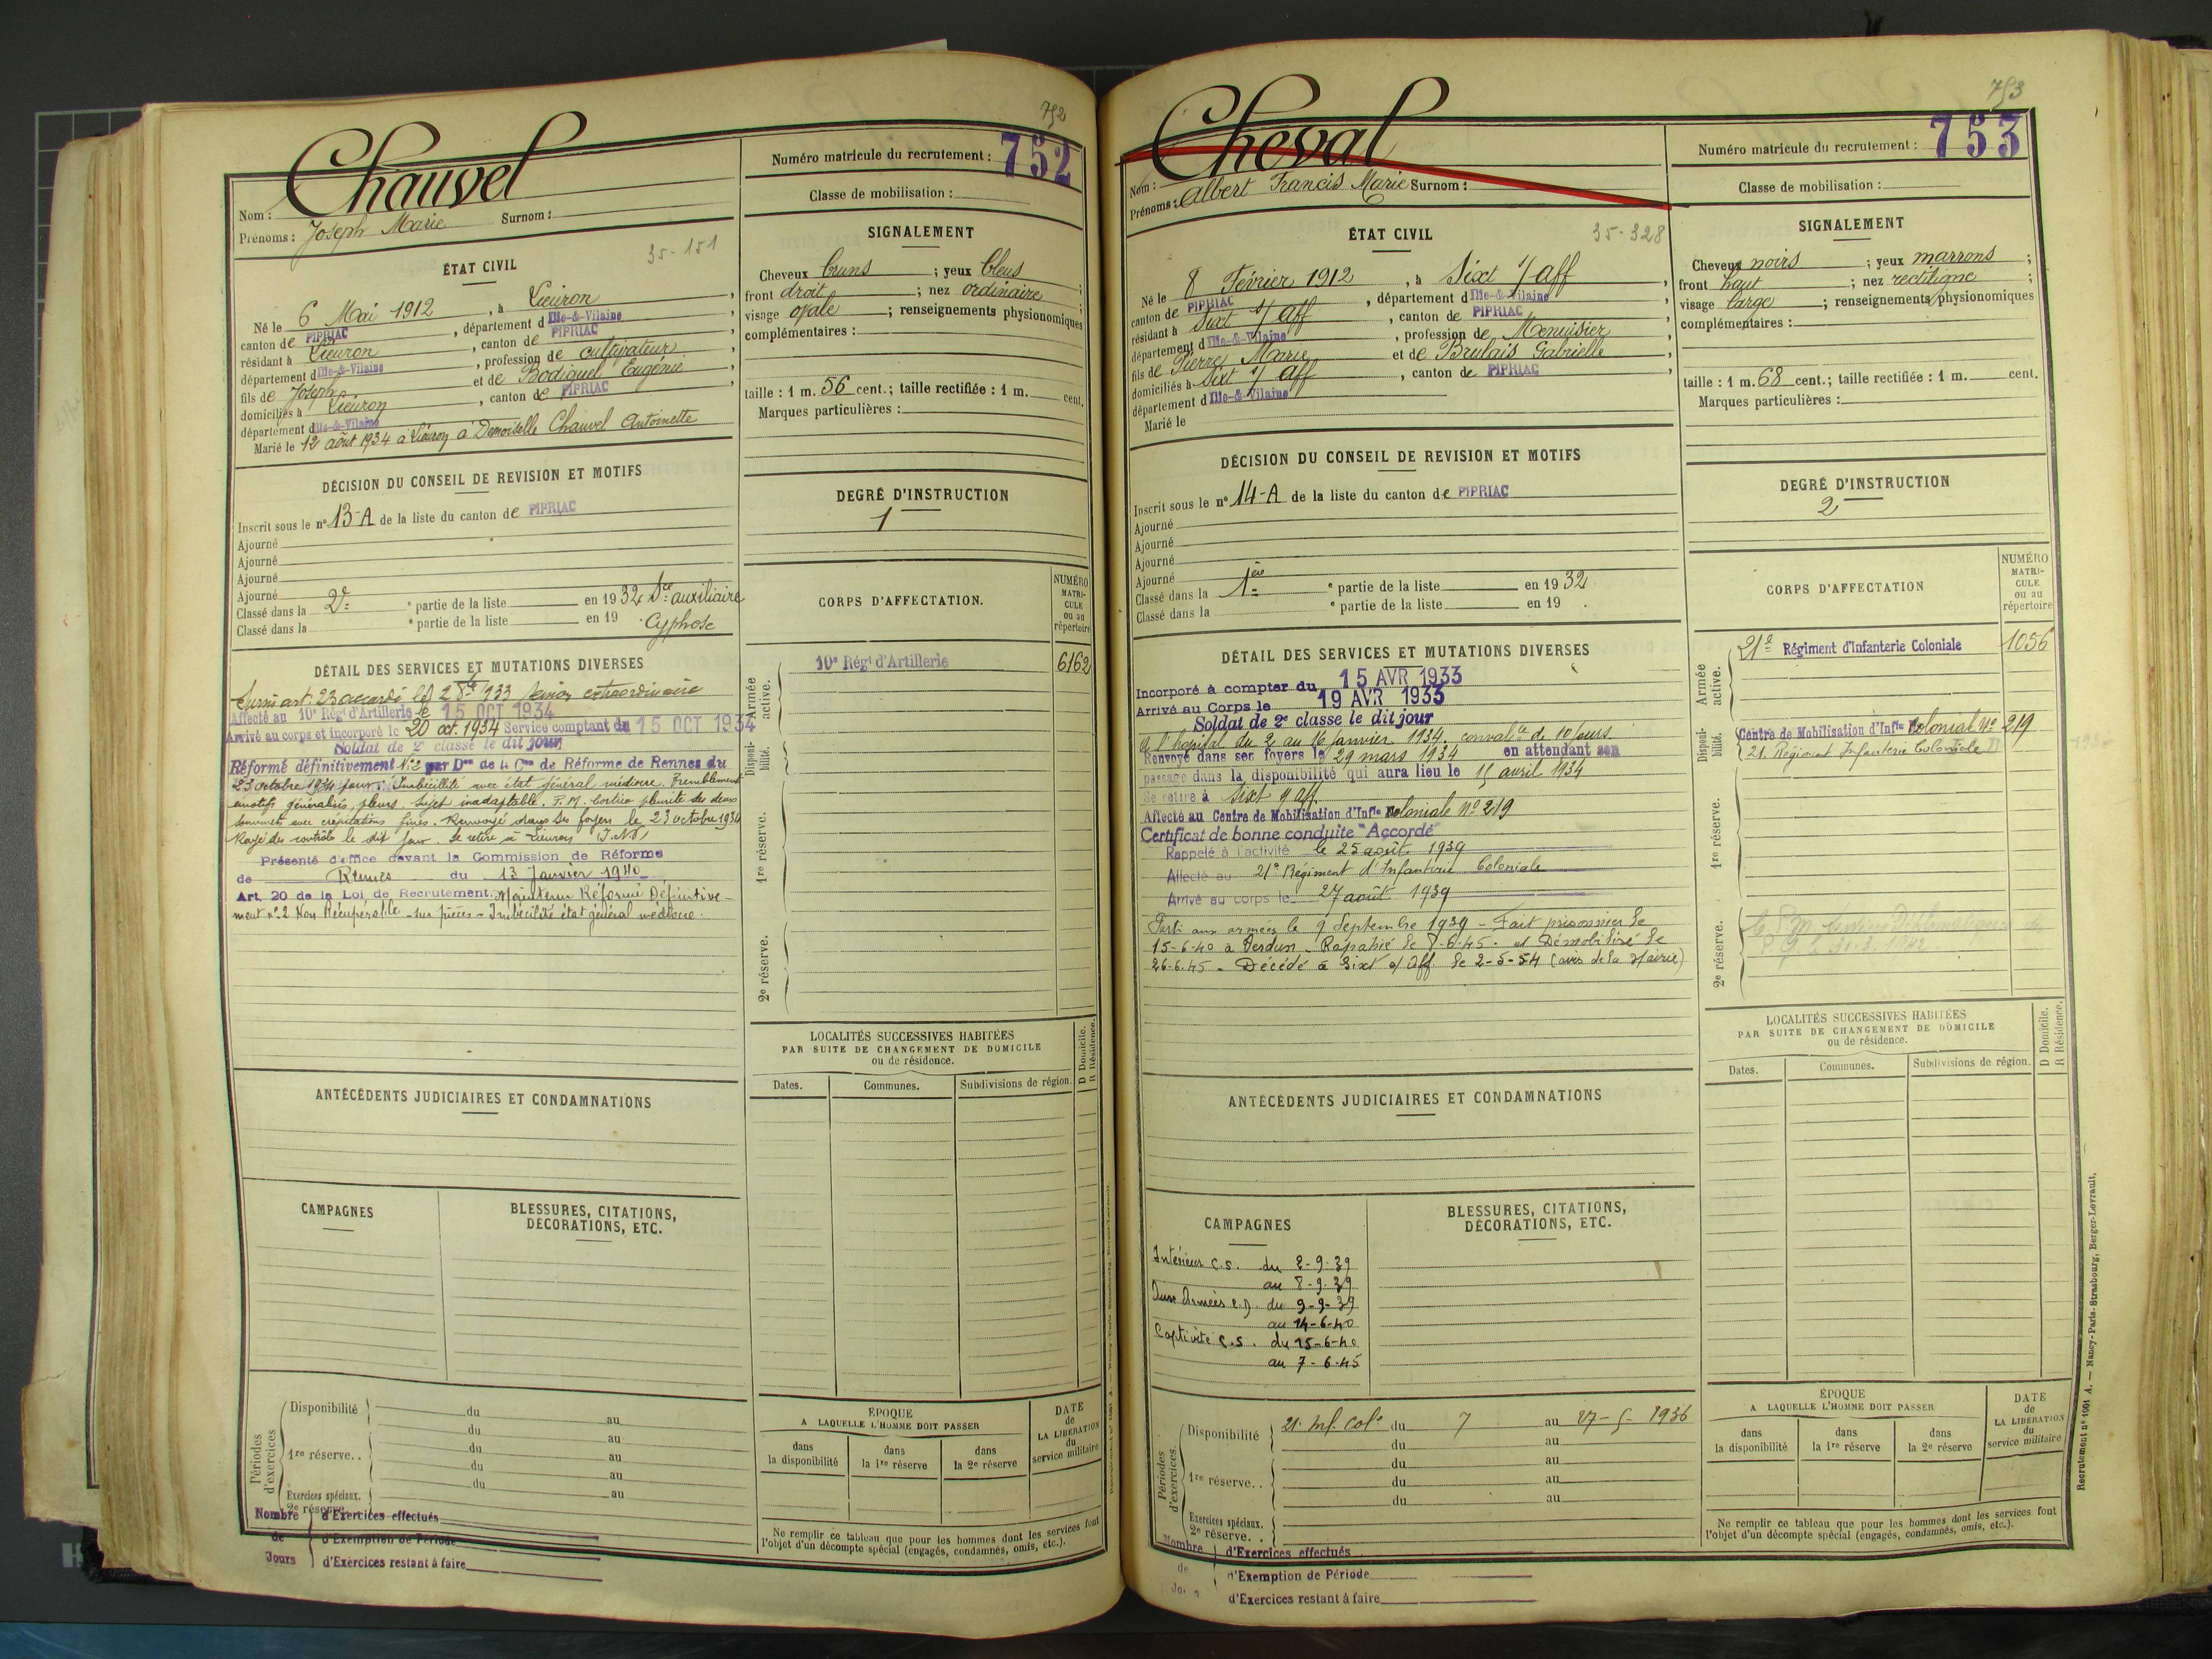 752
Chauvel
Nom :
Prénoms : Joseph Marie Surnom :
Numéro matricule du recrutement : 752
Classe de mobilisation :
ÉTAT CIVIL
35-151
Né le 6 Mai 1912, à Lieuron,
canton de PIPRIAC, département d Ille-&-Vilaine,
résidant à Lieuron, canton de PIPRIAC,
département d Ille-&-Vilaine, profession de cultivateur,
fils de Joseph et de Bodiguel Eugénie,
domiciliés à Lieuron, canton de PIPRIAC,
département d Ille-&-Vilaine
Marié le 12 août 1934 à Lieuron à Demoiselle Chauvel Antoinette
SIGNALEMENT
Cheveux bruns ; yeux bleus ;
front droit ; nez ordinaire ;
visage ovale ; renseignements physionomiques
complémentaires :
taille : 1 m. 56 cent.; taille rectifiée : 1 m. cent.
Marques particulières :
DÉCISION DU CONSEIL DE REVISION ET MOTIFS
Inscrit sous le n° 13-A de la liste du canton de PIPRIAC
Ajourné
Ajourné
Ajourné
Ajourné
Classé dans la 2e e partie de la liste en 1932 Sce auxiliaire
Classé dans la e partie de la liste en 19 . Cyphose
DEGRÉ D'INSTRUCTION
1
DÉTAIL DES SERVICES ET MUTATIONS DIVERSES
Sursis art. 23 accordé le 2 8bre 1933 extraordinaire
Affecté au 10e Régt d'Artillerie le 15 OCT 1934
Arrivé au corps et incorporé le 20 oct. 1934 Service comptant du 15 OCT 1934
Soldat de 2e classe le dit jour
Réformé définitivement N° 2 par Don de la Con de Réforme de Rennes du
23 octobre 1934 pour : Imbécillité avec état général médiocre. Tremblements
émotifs généralisés, pleurs. Sujet inadaptable. P.M. Cortico pleurite des deux
sommets avec crépitations fines. Renvoyé dans ses foyers le 23 octobre 1934
Rayé des contrôles le dit jour. Se retire à Lieuron
Présenté d'office devant la Commission de Réforme
de Rennes du 13 Janvier 1940
Art. 20 de la Loi de Recrutement. Maintenu Réformé Définitive-
ment n° 2 Non Récupérable - sur pièces - Imbécilité état général médiocre.
CORPS D'AFFECTATION.
NUMÉRO MATRI-CULE ou au répertoire
Armée active.
10e Régt d'Artillerie 6162
Disponi-bilité.
1re réserve.
2e réserve.
LOCALITÉS SUCCESSIVES HABITÉES
PAR SUITE DE CHANGEMENT DE DOMICILE
ou de résidence.
D Domicile. R Résidence.
Dates. Communes. Subdivisions de région.
ANTÉCÉDENTS JUDICIAIRES ET CONDAMNATIONS
CAMPAGNES
BLESSURES, CITATIONS,
DÉCORATIONS, ETC.
Périodes d'exercices
Disponibilité du au
du au
1re réserve. . du au
du au
du au
Exercices spéciaux.
2e réserve
Nombre de Jours
d'Exercices effectués
d'Exemption de Période
d'Exercices restant à faire
ÉPOQUE
A LAQUELLE L'HOMME DOIT PASSER
DATE de LA LIBÉRATION du service militaire
dans la disponibilité
dans la 1re réserve
dans la 2e réserve
Ne remplir ce tableau que pour les hommes dont les services font
l'objet d'un décompte spécial (engagés, condamnés, omis, etc.).
753
Cheval
Nom :
Prénoms : Albert Francis Marie Surnom :
Numéro matricule du recrutement : 753
Classe de mobilisation :
ÉTAT CIVIL
35-328
Né le 8 Février 1912, à Sixt s/ Aff,
canton de PIPRIAC, département d Ille-&-Vilaine,
résidant à Sixt s/ Aff, canton de PIPRIAC,
département d Ille-&-Vilaine, profession de Menuisier,
fils de Pierre Marie et de Brulais Gabrielle,
domiciliés à Sixt s/ Aff, canton de PIPRIAC,
département d Ille-&-Vilaine
Marié le
SIGNALEMENT
Cheveux noirs ; yeux marrons ;
front haut ; nez rectiligne ;
visage large ; renseignements physionomiques
complémentaires :
taille : 1 m. 68 cent.; taille rectifiée : 1 m. cent.
Marques particulières :
DÉCISION DU CONSEIL DE REVISION ET MOTIFS
Inscrit sous le n° 14-A de la liste du canton de PIPRIAC
Ajourné
Ajourné
Ajourné
Ajourné
Classé dans la 1ère e partie de la liste en 1932
Classé dans la e partie de la liste en 19 .
DEGRÉ D'INSTRUCTION
2
DÉTAIL DES SERVICES ET MUTATIONS DIVERSES
Incorporé à compter du 15 AVR 1933
Arrivé au Corps le 19 AVR 1933
Soldat de 2e classe le dit jour
A l'hôpital du 2 au 16 janvier 1934. convalce de 10 jours.
Renvoyé dans ses foyers le 29 mars 1934 en attendant son
passage dans la disponibilité qui aura lieu le 15 avril 1934
Se retire à Sixt s/ Aff.
Affecté au Centre de Mobilisation d'Infie Coloniale N° 219
Certificat de bonne conduite "Accordé"
Rappelé à l'activité le 25 août 1939
Affecté au 21e Régiment d'Infanterie Coloniale
Arrivé au corps le 27 août 1939
Parti aux armées le 9 Septembre 1939 - Fait prisonnier le
15-6-40 à Verdun. Rapatrié le 8-6-45. et Démobilisé le
26-6-45. Décédé à Sixt s/ Aff. le 2-5-54 (avis de la Mairie)
CORPS D'AFFECTATION
NUMÉRO MATRI-CULE ou au répertoire
Armée active.
21e Régiment d'Infanterie Coloniale 1056
Disponi-bilité.
Centre de Mobilisation d'Infie Colonial N° 219
21. Régiment Infanterie Coloniale
1re réserve.
2e réserve.
LOCALITÉS SUCCESSIVES HABITÉES
PAR SUITE DE CHANGEMENT DE DOMICILE
ou de résidence.
D Domicile. R Résidence.
Dates. Communes. Subdivisions de région.
ANTÉCÉDENTS JUDICIAIRES ET CONDAMNATIONS
CAMPAGNES
Intérieur C.S. du 2-9-39
au 8-9-39
Aux Armées C.D. du 9-9-39
au 14-6-40
Captivité C.S. du 15-6-40
au 7-6-45
BLESSURES, CITATIONS,
DÉCORATIONS, ETC.
Périodes d'exercices.
Disponibilité 21. Inf. Colе du 7 au 27-5-1936
du au
1re réserve. . du au
du au
du au
Exercices spéciaux.
2e réserve. .
Nombre de Jours
d'Exercices effectués
d'Exemption de Période
d'Exercices restant à faire
ÉPOQUE
A LAQUELLE L'HOMME DOIT PASSER
DATE de LA LIBÉRATION du service militaire
dans la disponibilité
dans la 1re réserve
dans la 2e réserve
Ne remplir ce tableau que pour les hommes dont les services font
l'objet d'un décompte spécial (engagés, condamnés, omis, etc.).
Recrutement n° 1001 A. — Nancy-Paris-Strasbourg, Berger-Levrault.